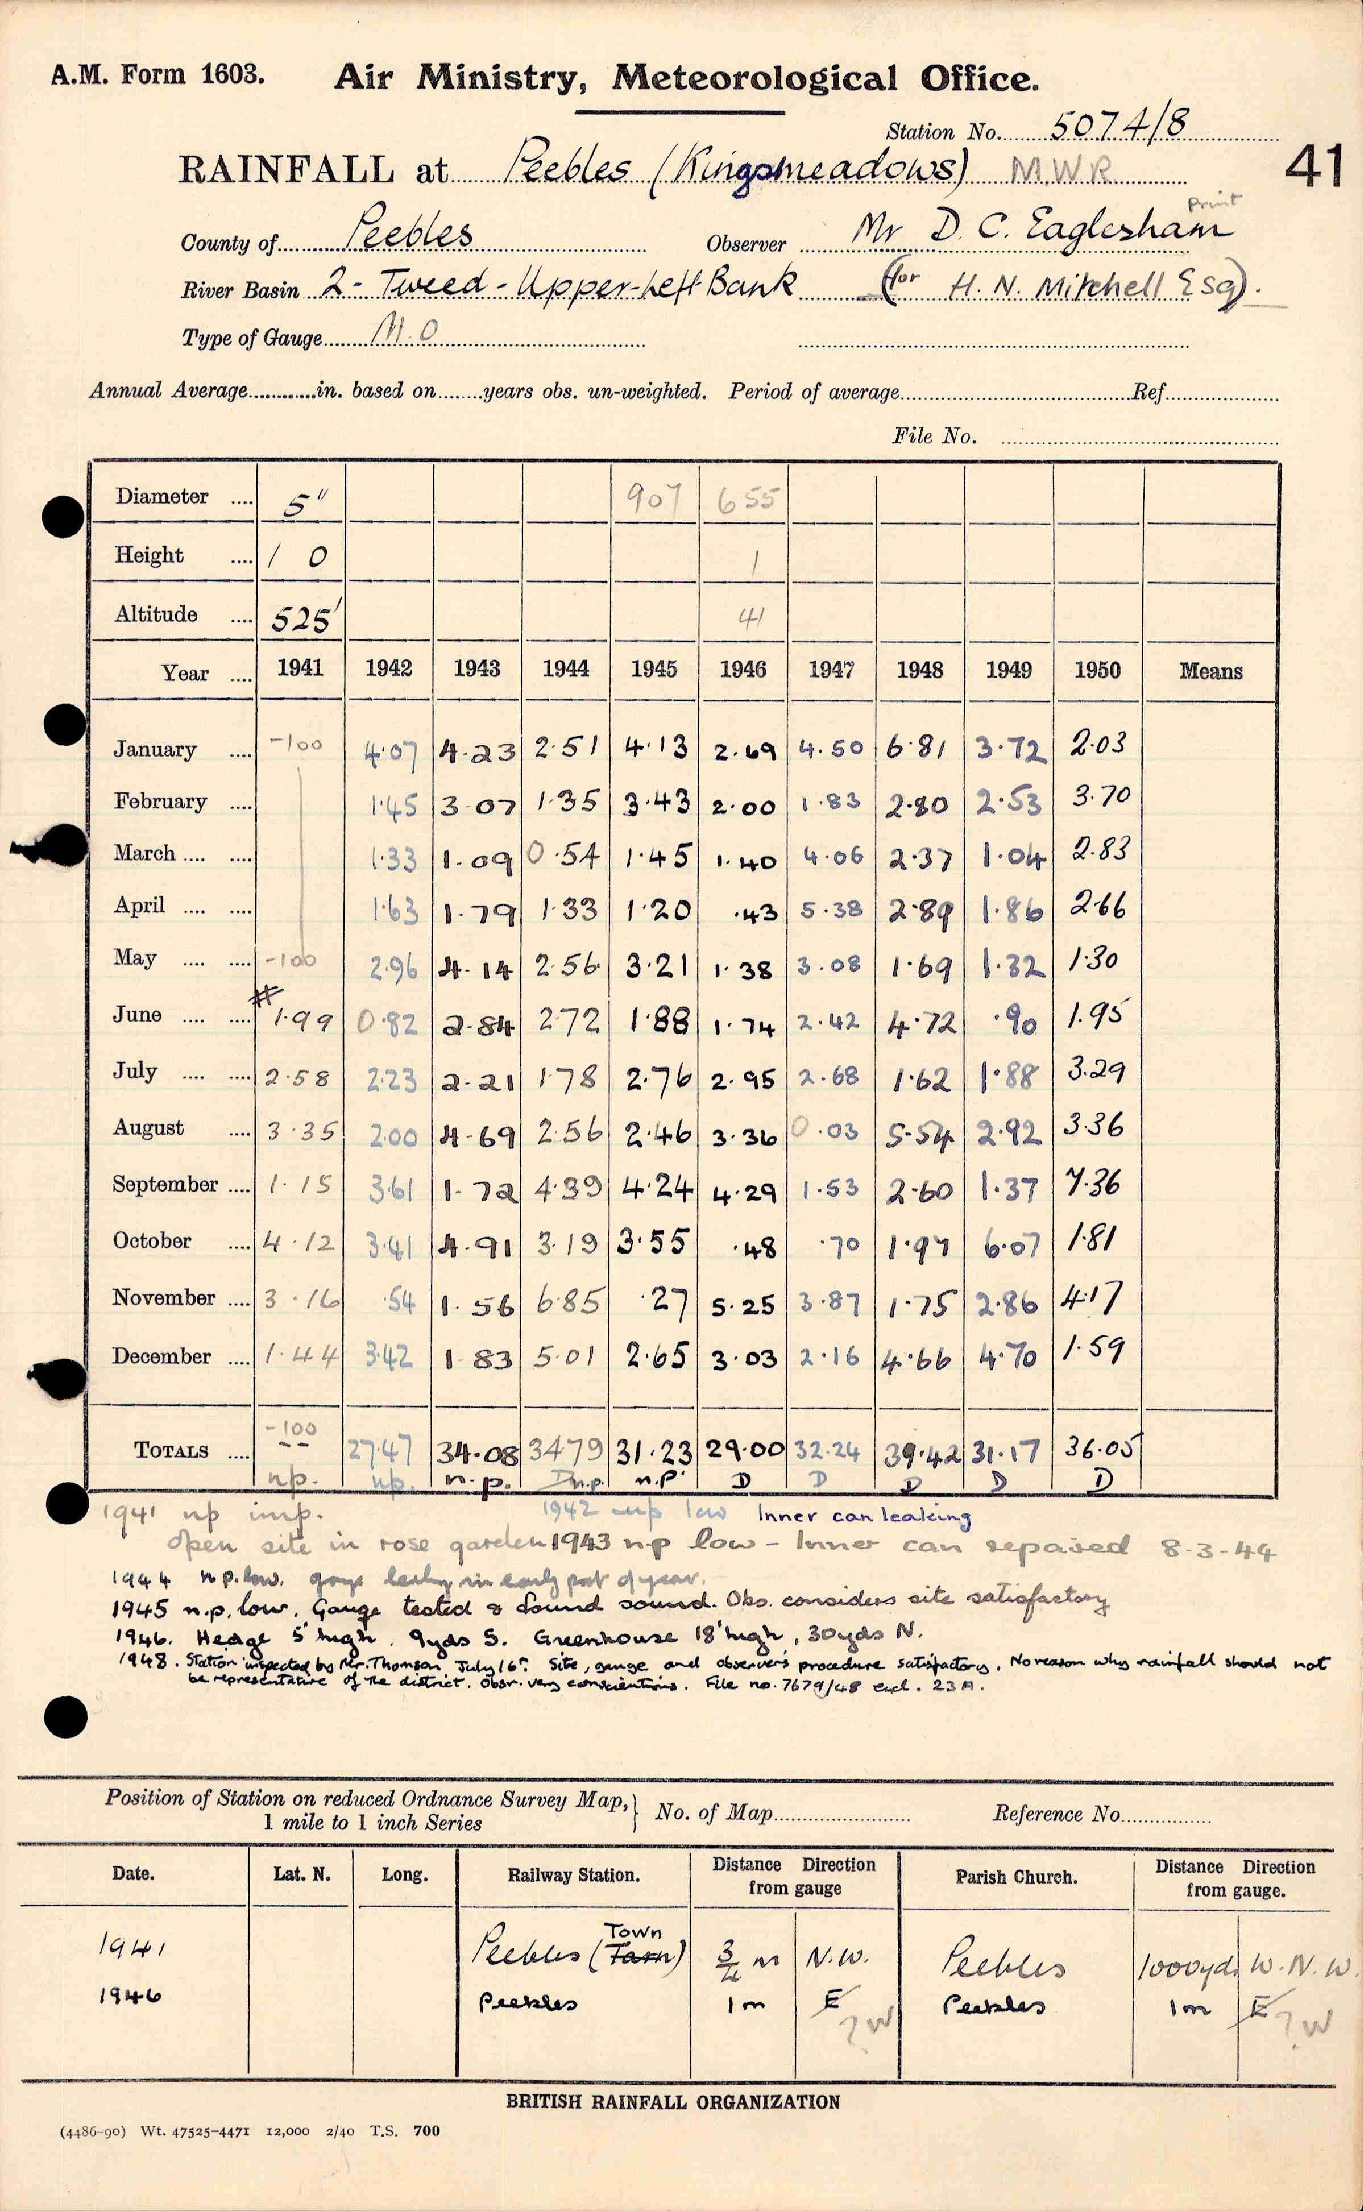 A.M. Form 1603. Air Ministry, Meteorological Office.
Station No. 5074/8
RAINFALL at Peebles (Kingsmeadows) M.W.R. 41
Print
County of Peebles Observer Mr D. C. Eaglesham
River Basin 2 - Tweed - Upper-Left Bank (for H. N. Mitchell Esq).
Type of Gauge M.O
Annual Average in. based on years obs. un-weighted. Period of average Ref
File No.
Diameter .... 5" 907 655
Height .... 1 0 1
Altitude .... 525' 41
Year .... 1941 1942 1943 1944 1945 1946 1947 1948 1949 1950 Means
January .... -100 4.07 4.23 2.51 4.13 2.69 4.50 6.81 3.72 2.03
February .... 1.45 3.07 1.35 3.43 2.00 1.83 2.80 2.53 3.70
March .... .... 1.33 1.09 0.54 1.45 1.40 4.06 2.37 1.04 2.83
April .... .... 1.63 1.79 1.33 1.20 .43 5.38 2.89 1.86 2.66
May .... .... -100 2.96 4.14 2.56 3.21 1.38 3.08 1.69 1.32 1.30
June .... .... # 1.99 0.82 2.84 2.72 1.88 1.74 2.42 4.72 .90 1.95
July .... .... 2.58 2.23 2.21 1.78 2.76 2.95 2.68 1.62 1.88 3.29
August .... 3.35 2.00 4.69 2.56 2.46 3.36 0.03 5.54 2.92 3.36
September .... 1.15 3.61 1.72 4.39 4.24 4.29 1.53 2.60 1.37 7.36
October .... 4.12 3.41 4.91 3.19 3.55 .48 .70 1.97 6.07 1.81
November .... 3.16 .54 1.56 6.85 .27 5.25 3.87 1.75 2.86 4.17
December .... 1.44 3.42 1.83 5.01 2.65 3.03 2.16 4.66 4.70 1.59
-100
TOTALS .... -- 27.47 34.08 34.79 31.23 29.00 32.24 39.42 31.17 36.05
np. np. n.p. D n.p. n.p. D D D D D
1941 np imp. 1942 np low Inner can leaking
Open site in rose garden 1943 n.p low - Inner can repaired 8-3-44
1944 n.p. low. gauge leaky in early part of year.
1945 n.p. low. Gauge tested & found sound. Obs. considers site satisfactory
1946. Hedge 5' high, 9yds S. Greenhouse 18' high, 30yds N.
1948. Station inspected by Mr. Thomson July 16th. Site, gauge and observer's procedure satisfactory. No reason why rainfall should not
be representative of the district. Obsr. very conscientious. File no. 7679/48 encl. 23A.
Position of Station on reduced Ordnance Survey Map, 1 mile to 1 inch Series } No. of Map Reference No.
Date. Lat. N. Long. Railway Station. Distance Direction from gauge Parish Church. Distance Direction from gauge.
1941 Peebles (Tarn Town) 3/4 m N.W. Peebles 1000yds W.N.W.
1946 Peebles 1m E ?W Peebles 1m E ?W
BRITISH RAINFALL ORGANIZATION
(4486-90) Wt. 47525-4471 12,000 2/40 T.S. 700